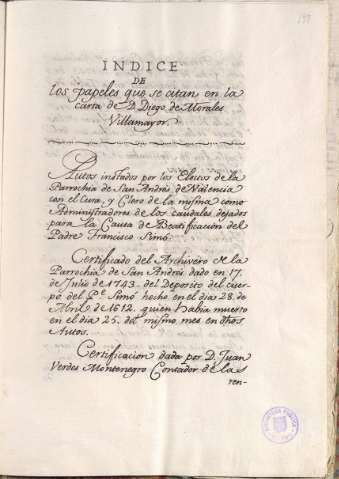 197
INDICE
DE
los papeles que se citan en la
carta de D. Diego de Morales
Villamayor.
Autos instados por los Electos de la
Parrochia de San Andrès de Valencia
con el Cura, y Clero de la misma como
Administradores de los caudales dejados
para la Causa de Beatificación del
Padre Francisco Simó.
Certificado del Archivero de la
Parrochia de San Andrès dado en 17.
de Julio de 1743. del Deposito del cuer-
po del Pe. Simó hecho en el dia 28. de
Abril de 1612. quien había muerto
en el dia 25. del mismo mes en dhos
Autos.
Certificacion dada por D. Juan
Verdes Montenegro Contador de las
ren-